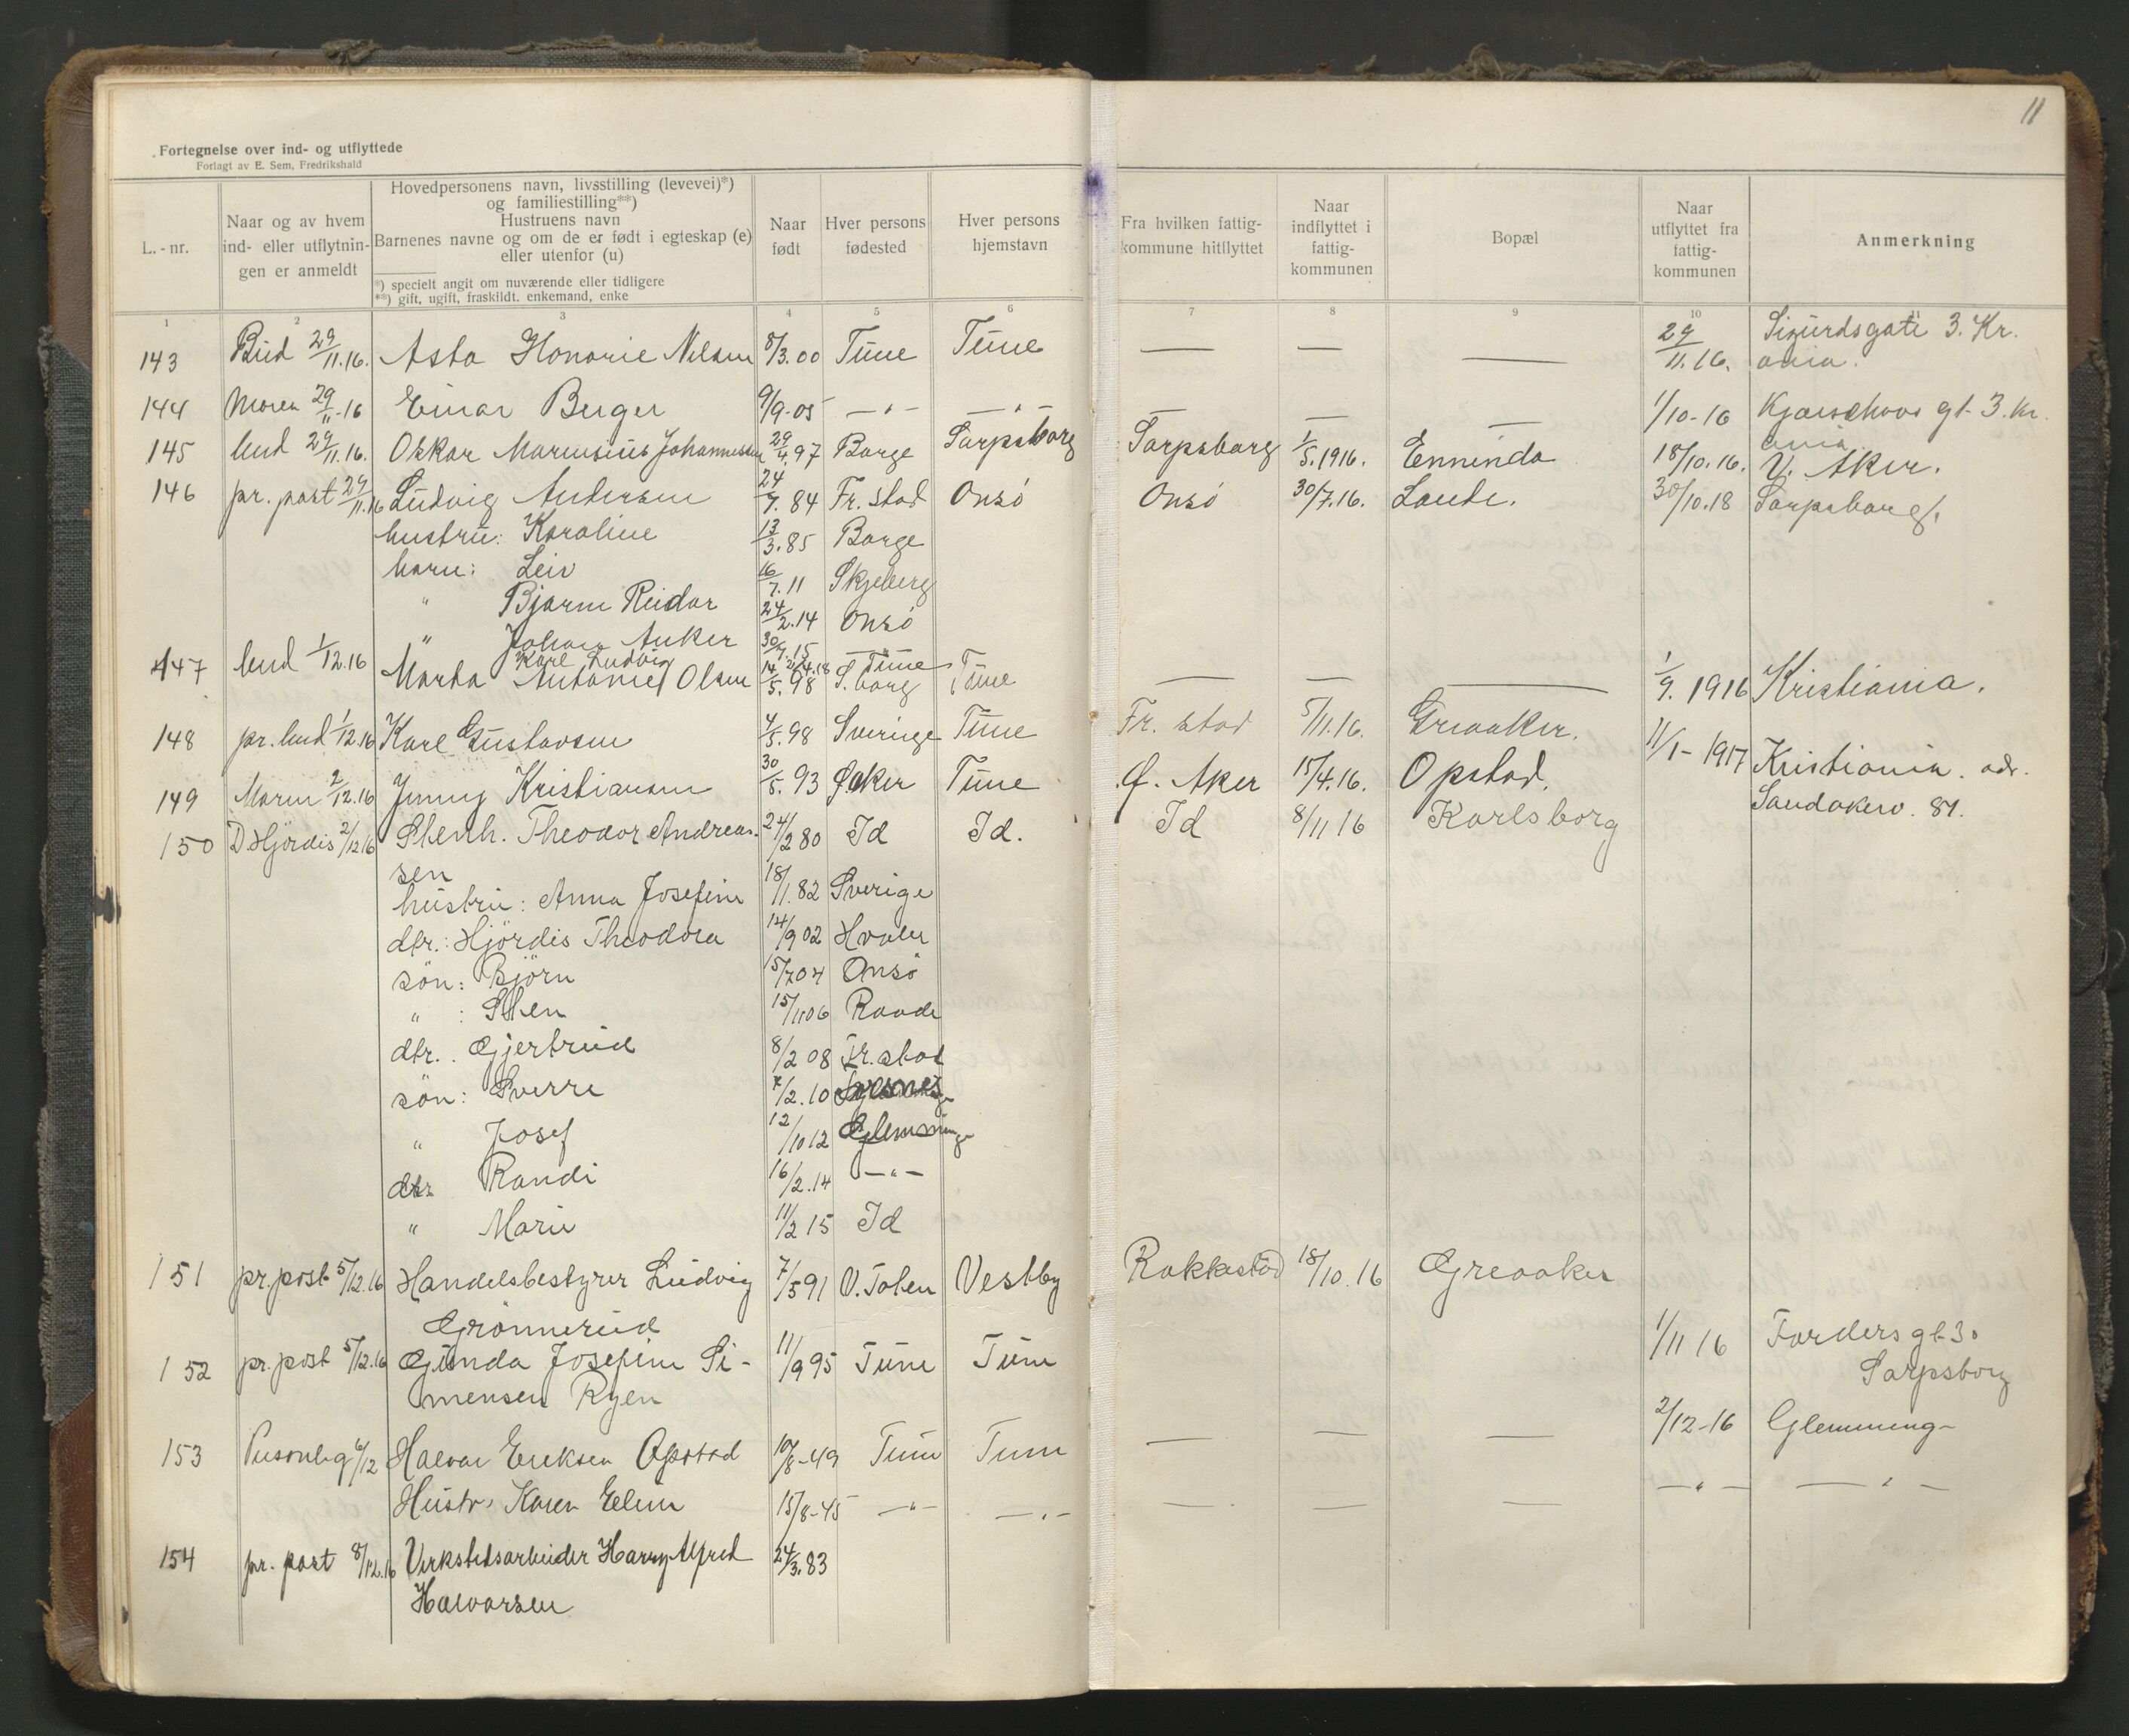 11
Fortegnelse over ind- og utflyttede
Forlagt av E. Sem, Fredrikshald
L.-nr.
Naar og av hvem
ind- eller utflytnin-
gen er anmeldt
Hovedpersonens navn, livsstilling (levevei)*)
og familiestilling**)
Hustruens navn
Barnenes navne og om de er født i egteskap (e)
eller utenfor (u)
*) specielt angit om nuværende eller tidligere
**) gift, ugift, fraskildt. enkemand, enke
Naar
født
Hver persons
fødested
Hver persons
hjemstavn
Fra hvilken fattig-
kommune hitflyttet
Naar
indflyttet i
fattig-
kommunen
Bopæl
Naar
utflyttet fra
fattig-
kommunen
Anmerkning
1 2 3 4 5 6 7 8 9 10
143 Bud 29/11.16. Asta Honorie Nilsen 8/3.00 Tune Tune — — — 29/11.16. Sigurdsgate 3. Kr.
ania.
144 Moren 29/11-16 Einar Berger 9/9-05 —„— —„— — — — 1/10-16 gt. 3. Kr.
ania
145 bud 29/11.16. Oskar Johannessen 29/4.97 Borge Sarpsborg Sarpsborg 1/5.1916. Enninda 18/10.16. V. Aker.
146 pr. post 29/11.16 Ludvig Andersen 24/7.84 Fr.stad Onsö Onsö 30/7.16. Lande. 30/10.18 Sarpsborg.
hustru: Karoline 13/3.85 Borge
barn: Leiv 16/7.11 Skjeberg
„ Bjarne Reidar 24/2.14 Onsö
„ Johan Anker 30/9.15 —„—
Karl Ludvig 2/4.18 Tune
147 bud 1/12.16 Marta Antonie Olsen 14/5.98 S.borg Tune — — — 1/9.1916 Kristiania.
148 pr. bud 1/12.16 Karl Gustavsen 4/5.98 Sverige Tune Fr.stad 5/11.16. Greaaker.
11/1-1917 Kristiania. adr.
149 Moren 2/12.16 Jenny Kristiansen 30/5.93 Ø.aker Tune Ø. Aker 15/4.16. Opstad.
Sandakerv. 81.
150 D. Hjördis 2/12.16 Stenh. Theodor Andreas- 24/2 80 Id Id. Id 8/11 16 Karlsborg
sen
hustru: Anna Josefine 18/1.82 Sverige
dtr.: Hjördis Theodora 14/9 02 Hvaler
sön: Björn 15/7 04 Onsö
„ : Sten 15/11 06 Raade
dtr.. Gjertrud 8/2 08 Fr.stad
sön: Sverre 7/2.10
„ Josef 12/10 12 Glemminge
dtr Randi 16/2.14 —„—
„ Marie 11/2 15 Id
151 pr.post 5/12.16 Handelsbestyrer Ludvig 7/5 91 V.Toten Vestby Rakkestad 18/10.16 Greaaker
Grønnerud
152 pr.post 5/12.16 Gunda Josefine Si- 11/9 95 Tune Tune 1/11 16 Farders gt. 30
mensen Ryen Sarpsborg
153 Personlig 6/12 Halvar Eriksen Opstad 10/8-49 Tune Tune — — — 2/12-16 Glemminge
Hustr. Karen Eline 15/8-45 —„— —„— — — — —„— —„—
154 pr. post 8/12.16 Verkstedsarbeider Harry Alfred 24/3.83
Halvorsen